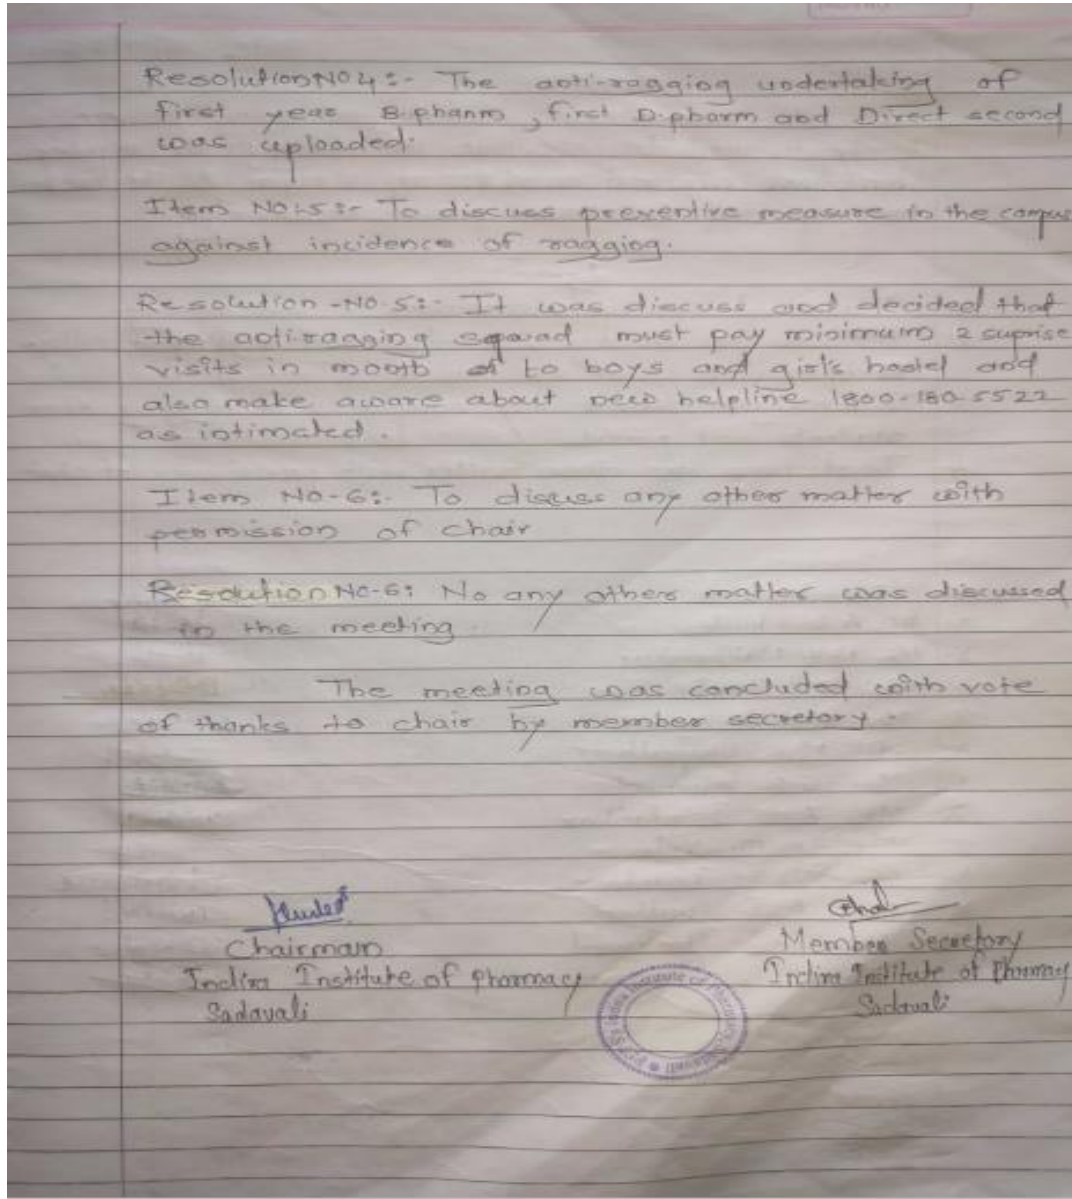 Resolution No 4:- The anti-ragging undertaking of
first year B.pharm, first D.pharm and Direct second
was uploaded.
Item No:-5:- To discuss preventive measure in the campus
against incidence of ragging.
Resolution -No.5:- It was discuss and decided that
the anti-ragging squad must pay minimum 2 suprise
visits in month to boys and girl's hostel and
also make aware about new helpline 1800-180-5522
as intimated.
Item No-6:- To discuss any other matter with
permission of chair
Resolution No-6: No any other matter was discussed
in the meeting.
The meeting was concluded with vote
of thanks to chair by member secretory.
Chairman
Indira Institute of Pharmacy
Sadavali
Member Secretory
Indira Institute of Pharmacy
Sadavali
Indira Institute of Pharmacy, Sadavali